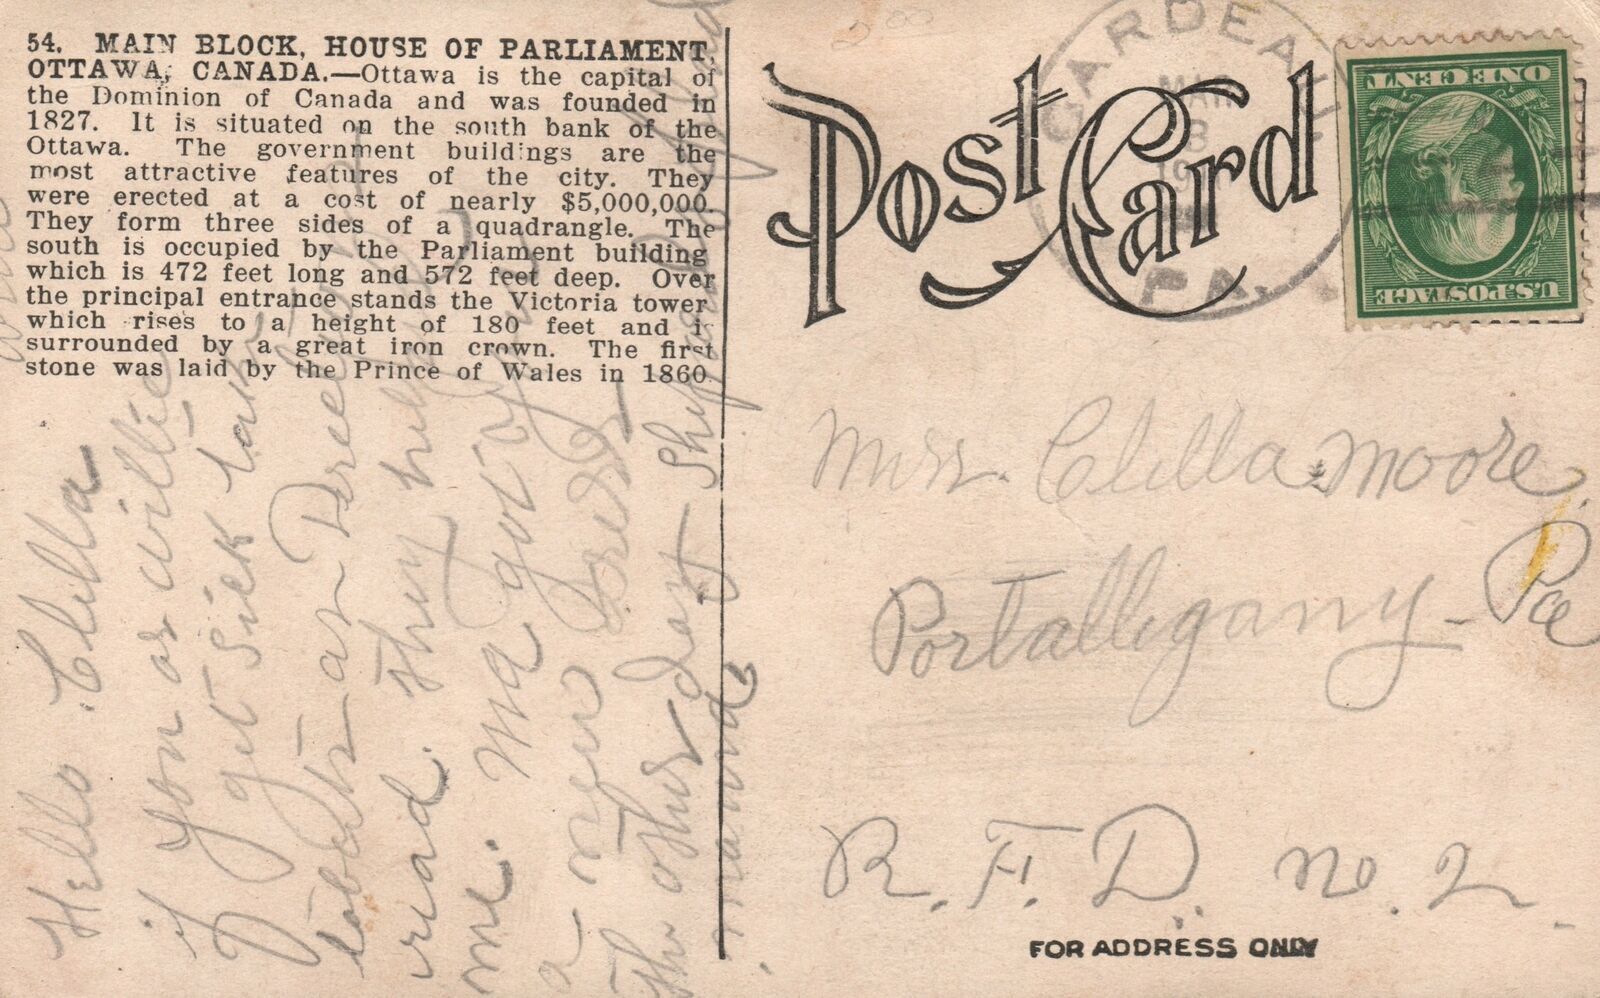 54. MAIN BLOCK, HOUSE OF PARLIAMENT,
OTTAWA, CANADA.—Ottawa is the capital of
the Dominion of Canada and was founded in
1827. It is situated on the south bank of the
Ottawa. The government buildings are the
most attractive features of the city. They
were erected at a cost of nearly $5,000,000.
They form three sides of a quadrangle. The
south is occupied by the Parliament building
which is 472 feet long and 572 feet deep. Over
the principal entrance stands the Victoria tower
which rises to a height of 180 feet and is
surrounded by a great iron crown. The first
stone was laid by the Prince of Wales in 1860.
Post Card
GARDEAU
MAR
8
PA.
ONE CENT
U.S. POSTAGE
Miss. Clella Moore.
Portallegany - Pa
R. F. D. No. 2.
FOR ADDRESS ONLY
Hello Clella
if you or Willie
get sick take
they
me. Ma got
a new dress
the other day